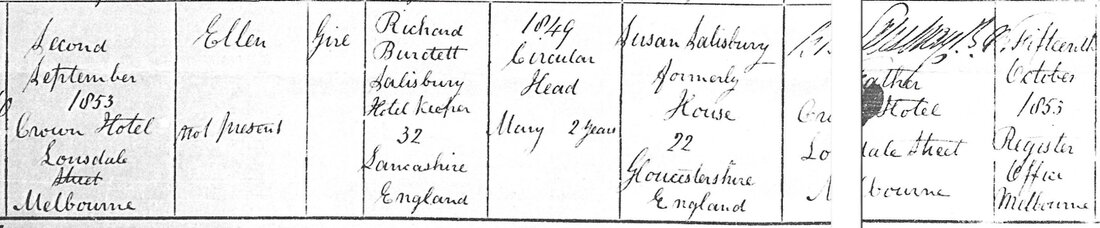 Second
September
1853
Crown Hotel
Lonsdale
Street
Melbourne
Ellen
not present
Girl
Richard
Burtett
Salisbury
Hotel Keeper
32
Lancashire
England
1849
Circular
Head
Mary 2 years
Susan Salisbury
formerly
House
22
Gloucestershire
England
Cro
Lo
M
ather
Hotel
dale Street
bourne
Fifteenth
October
1853
Register
Office
Melbourne